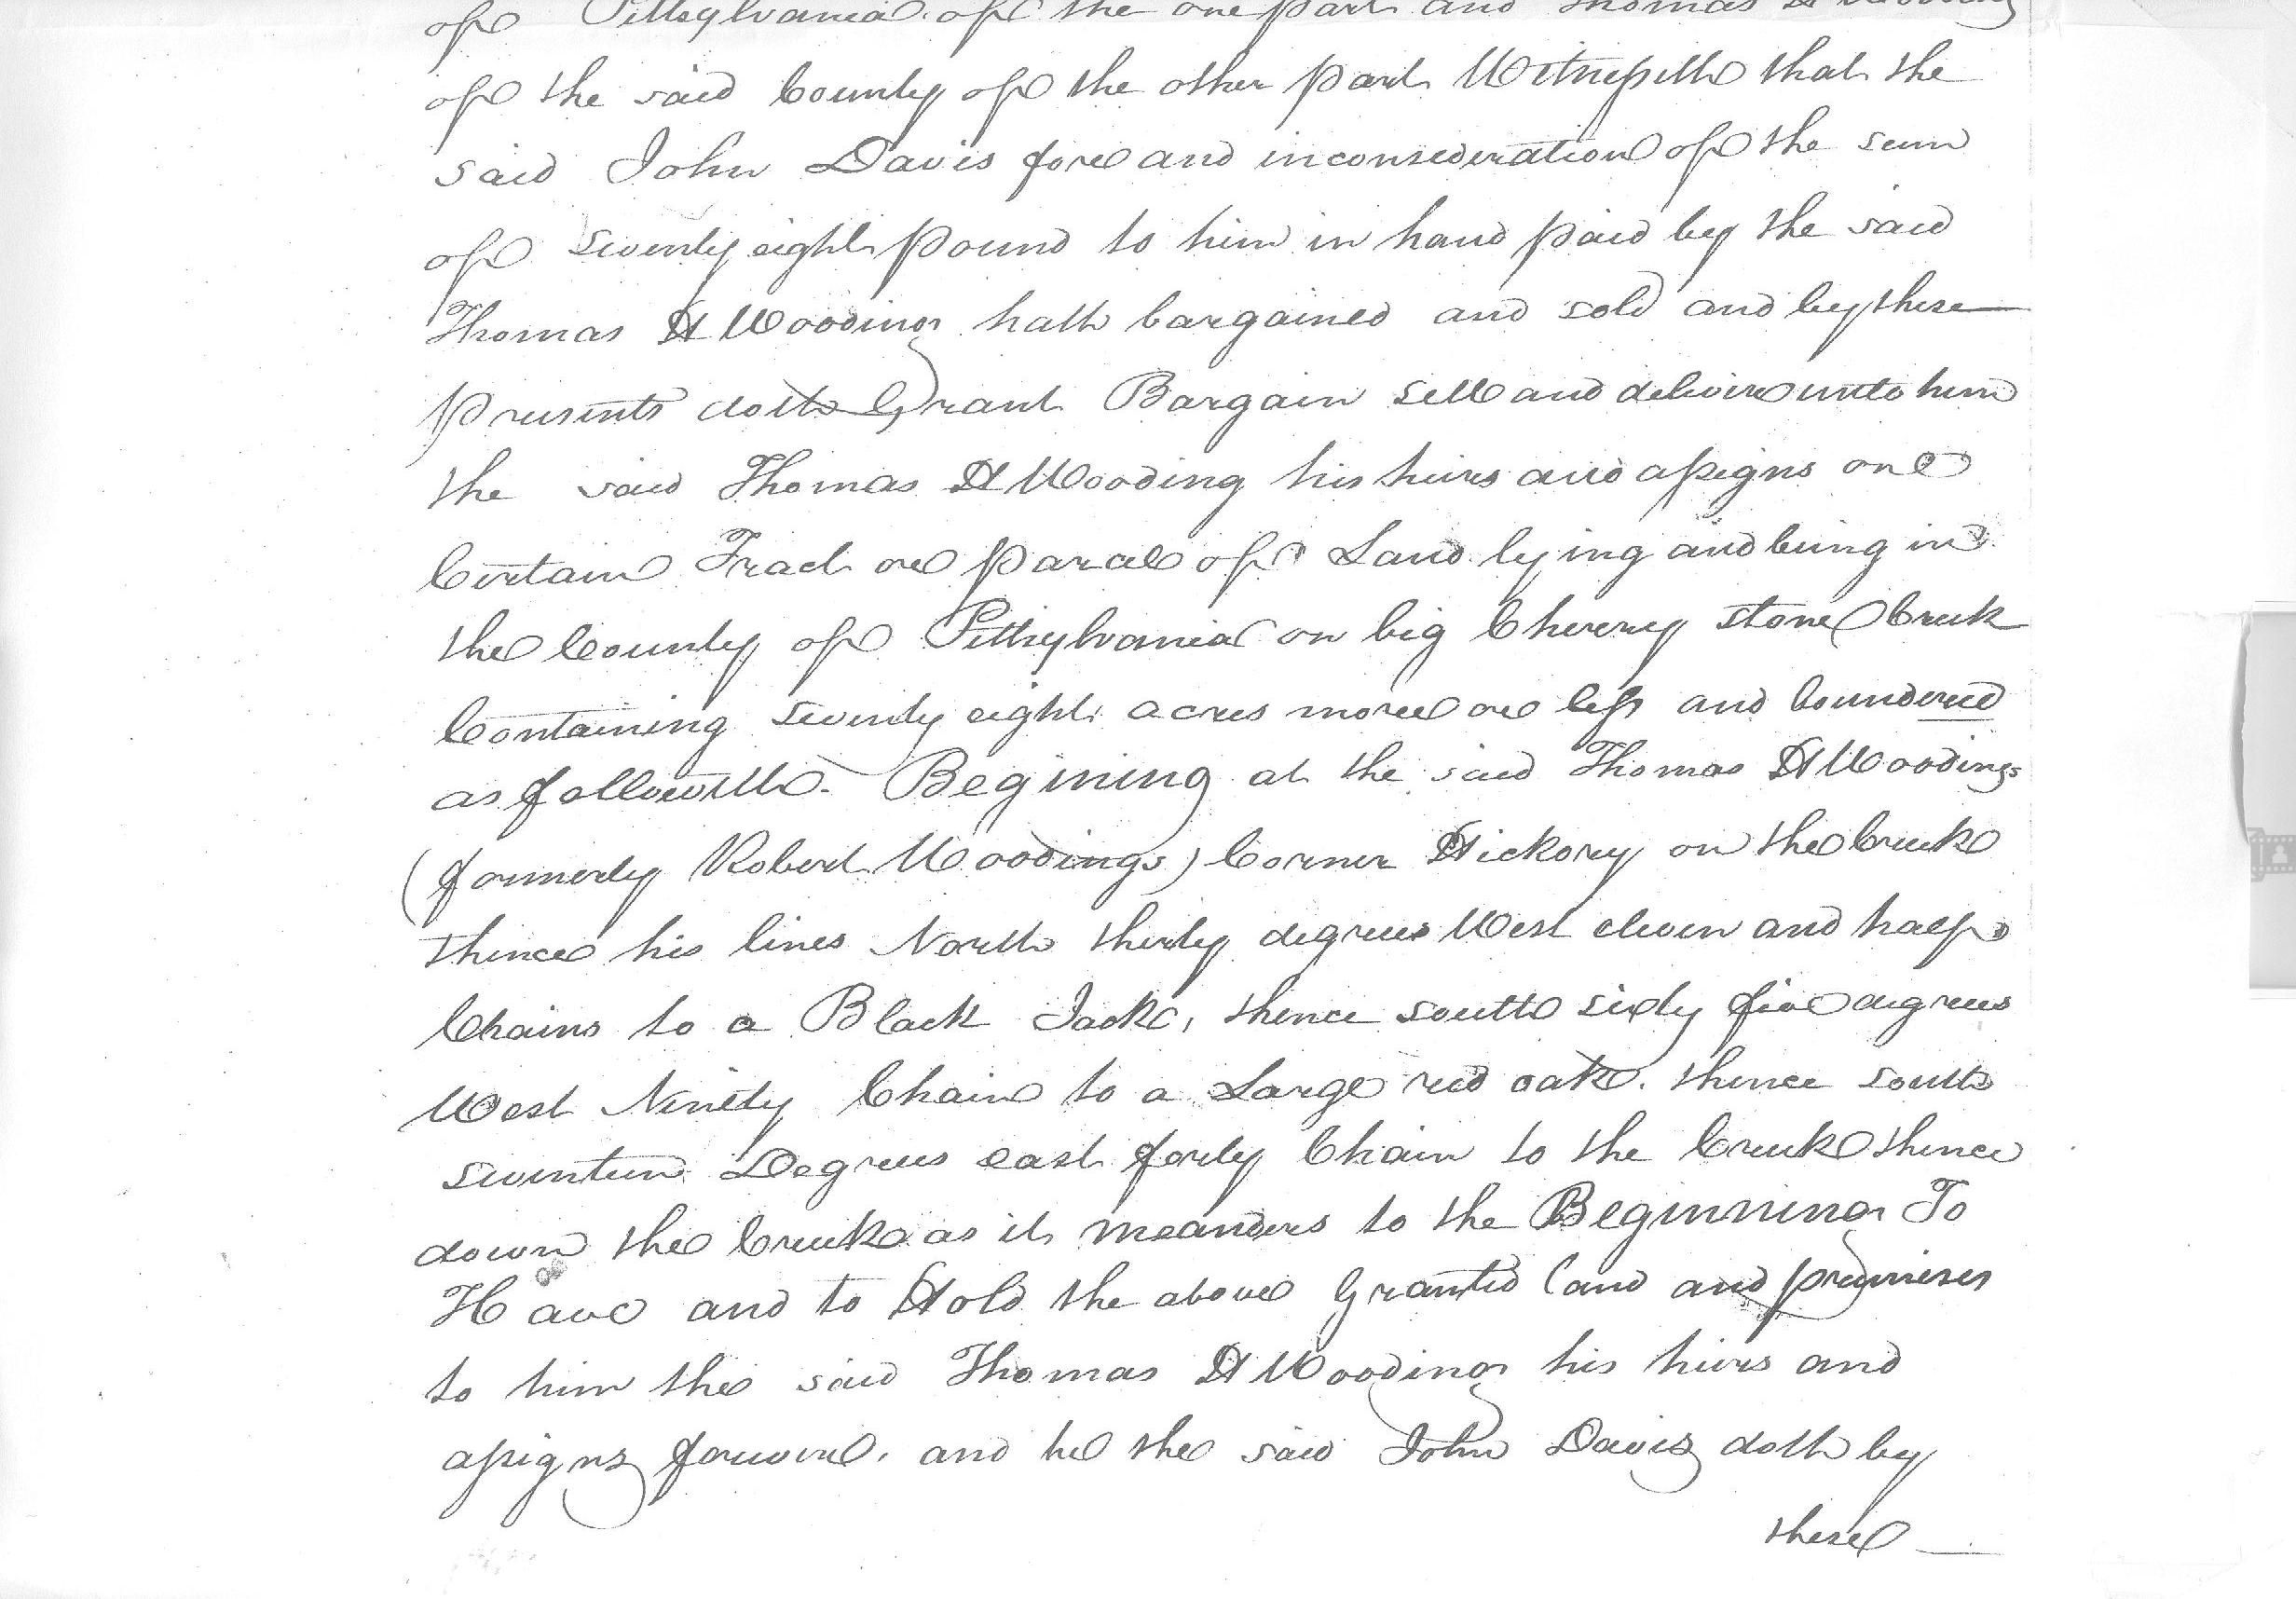 of Pittsylvania of the one part and Thomas H Wooding
of the said County of the other part Witnesseth that the
said John Davis fore and in consideration of the sum
of seventy eight Pound to him in hand paid by the said
Thomas H Wooding hath bargained and sold and by these
presents doth Grant Bargain sell and deliver unto him
the said Thomas H Wooding his heirs and assigns one
Certain Tract or parcel of Land lying and being in
the County of Pittsylvania on big Cherrey stone Creek
Containing seventy eight acres more or less and boundered
as followeth. Begining at the said Thomas H Woodings
(formerly Robert Woodings) Corner Hickory on the Creek
thence his lines North thirty degrees West eleven and half
Chains to a Black Jack, thence south sixty five degrees
West Ninety Chain to a Large red oak. thence south
seventeen Degrees east forty Chain to the Creek thence
down the Creek as it meanders to the Beginning To
Have and to Hold the above Granted Land and premises
to him the said Thomas H Wooding his heirs and
assigns forever. and he the said John Davis doth by
these